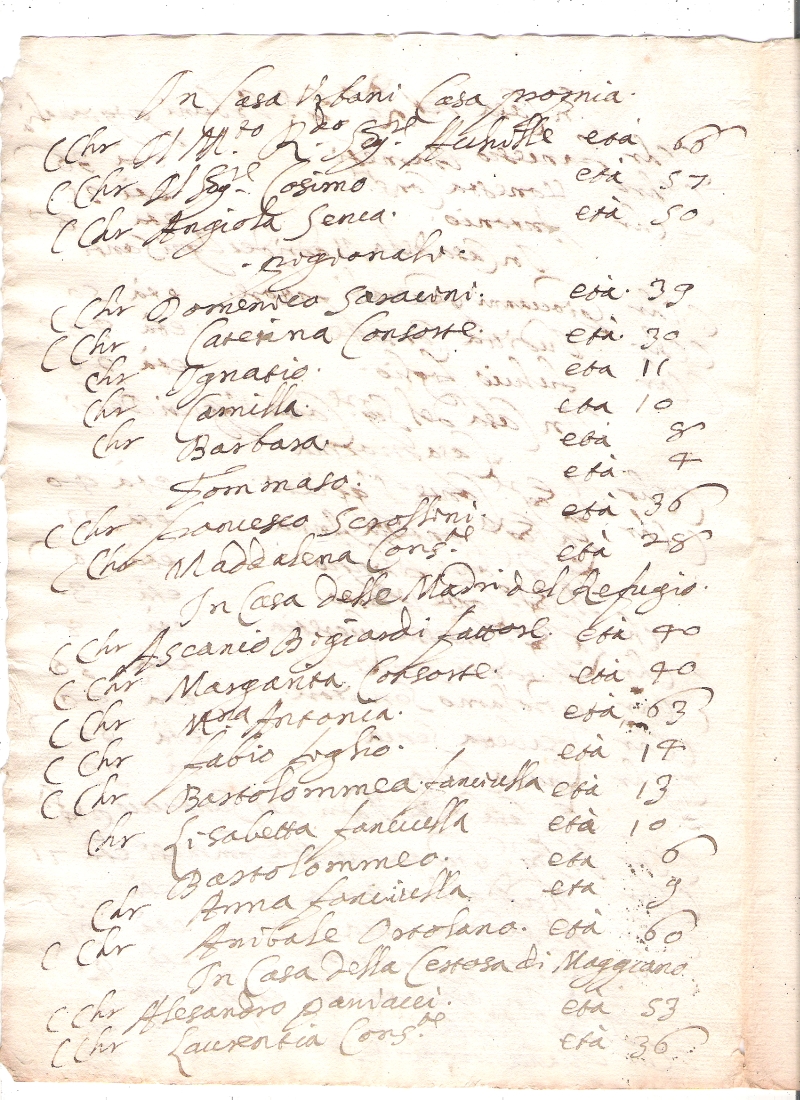 In Casa Urbani Casa propria.
C Chr Il M.to R.do Sig.re Achille età 66
C Chr Il Sig.re Cosimo età 57
C Chr Angiola Serua. età 50
pigionali.
C Chr Domenico Saracini. età 39
C Chr Caterina Consorte. età 30
Chr Ignatio. età 11
Chr Camilla. età 10
Chr Barbara. età 8
Tommaso. età 4
C Chr Francesco Scrossini. età 36
C Chr Maddalena Cons.te età 28
In Casa delle Madri del Refugio.
C Chr Ascanio Bigiardi fattore. età 40
C Chr Margarita Consorte. età 40
C Chr M.na Antonia. età 63
C Chr Fabio figlio. età 14
C Chr Bartolommea fanciulla età 13
Chr Lisabetta fanciulla età 10
Bartolommeo. età 6
Chr Anna fanciulla età 9
C Chr Anibale Ortolano. età 60
In Casa della Certosa di Maggiano.
C Chr Alesandro paniacci. età 53
C Chr Laurentia Cons.te età 36